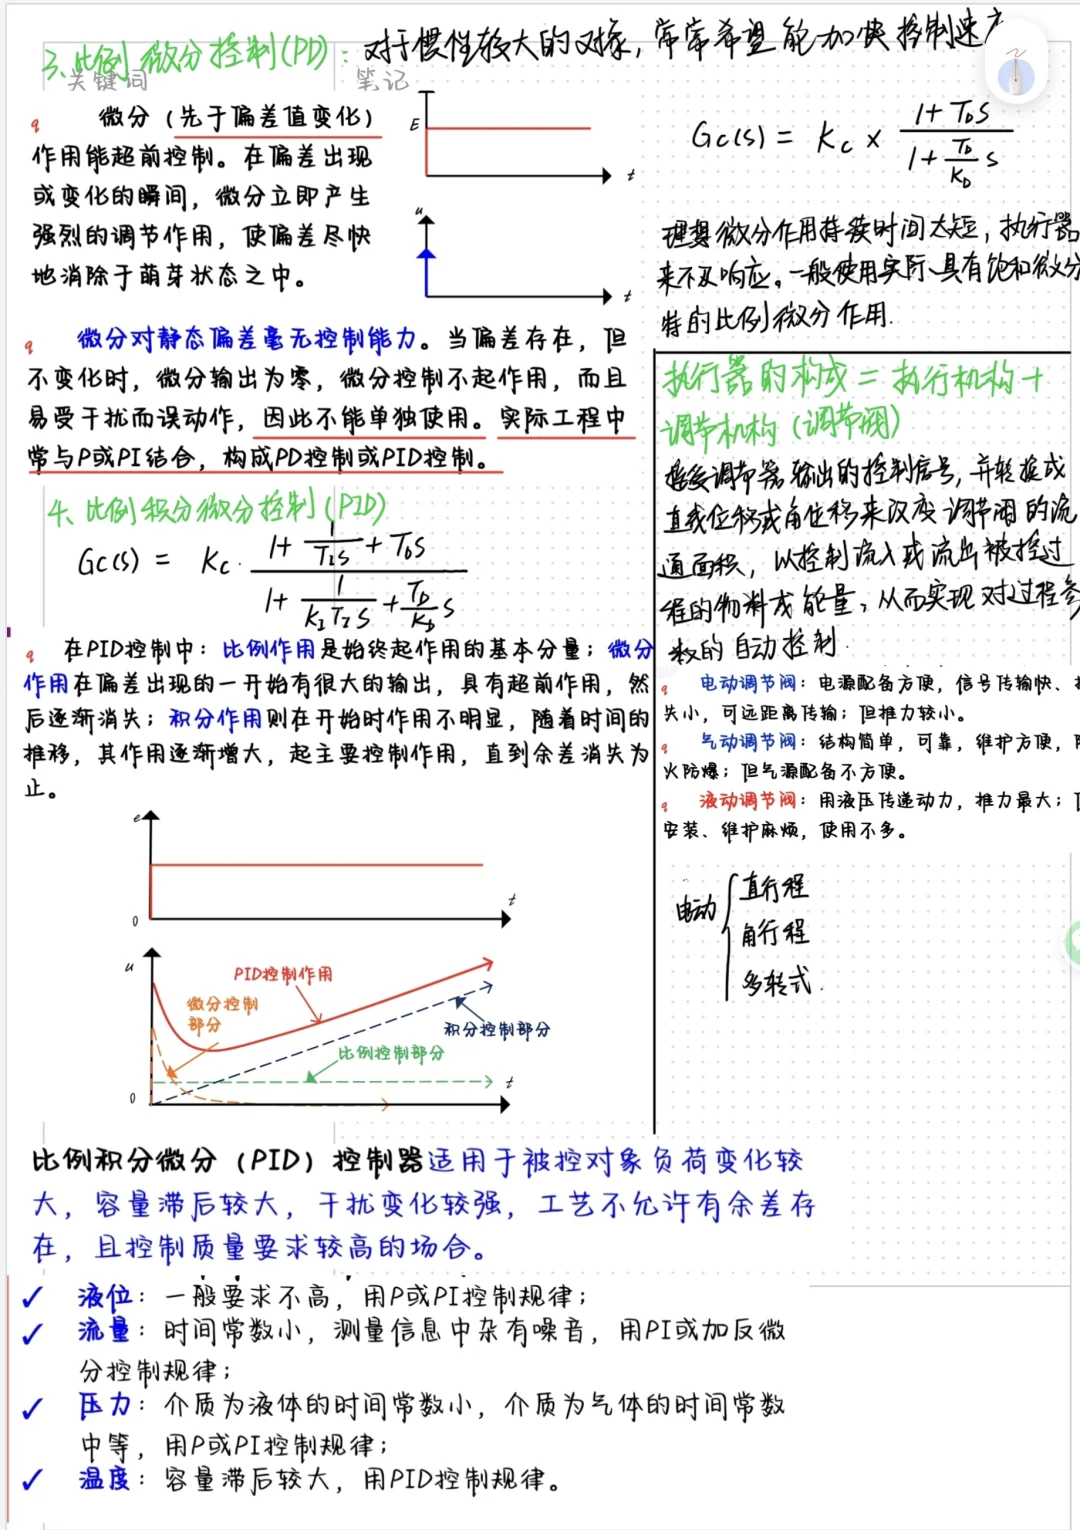 3、比例微分控制(PD)：对于惯性较大的对象，常常希望能加快控制速
关键词
笔记
微分（先于偏差值变化）
作用能超前控制。在偏差出现
或变化的瞬间，微分立即产生
强烈的调节作用，使偏差尽快
地消除于萌芽状态之中。
E
t
u
t
微分对静态偏差毫无控制能力。当偏差存在，但
不变化时，微分输出为零，微分控制不起作用，而且
易受干扰而误动作，因此不能单独使用。实际工程中
常与P或PI结合，构成PD控制或PID控制。
4、比例积分微分控制(PID)
Gc(s) = Kc · (1 + 1/(TIS) + TDS) / (1 + 1/(KITIS) + (TD/KD)S)
在PID控制中：比例作用是始终起作用的基本分量；微分
作用在偏差出现的一开始有很大的输出，具有超前作用，然
后逐渐消失；积分作用则在开始时作用不明显，随着时间的
推移，其作用逐渐增大，起主要控制作用，直到余差消失为
止。
e
0
t
u
PID控制作用
微分控制
部分
积分控制部分
比例控制部分
0
t
Gc(s) = Kc × (1 + TDS) / (1 + (TD/KD)S)
理想微分作用持续时间太短，执行器
来不及响应。一般使用实际具有饱和微分
特的比例微分作用.
执行器的构成 = 执行机构 +
调节机构（调节阀）
接受调节器输出的控制信号，并转换成
直线位移或角位移来改变调节阀的流
通面积，以控制流入或流出被控过
程的物料或能量，从而实现对过程参
数的自动控制.
电动调节阀：电源配备方便，信号传输快、
失小，可远距离传输；但推力较小。
气动调节阀：结构简单，可靠，维护方便，
火防爆；但气源配备不方便。
液动调节阀：用液压传递动力，推力最大；
安装、维护麻烦，使用不多。
电动
直行程
角行程
多转式.
比例积分微分（PID）控制器适用于被控对象负荷变化较
大，容量滞后较大，干扰变化较强，工艺不允许有余差存
在，且控制质量要求较高的场合。
✓ 液位：一般要求不高，用P或PI控制规律；
✓ 流量：时间常数小，测量信息中杂有噪音，用PI或加反微
分控制规律；
✓ 压力：介质为液体的时间常数小，介质为气体的时间常数
中等，用P或PI控制规律；
✓ 温度：容量滞后较大，用PID控制规律。